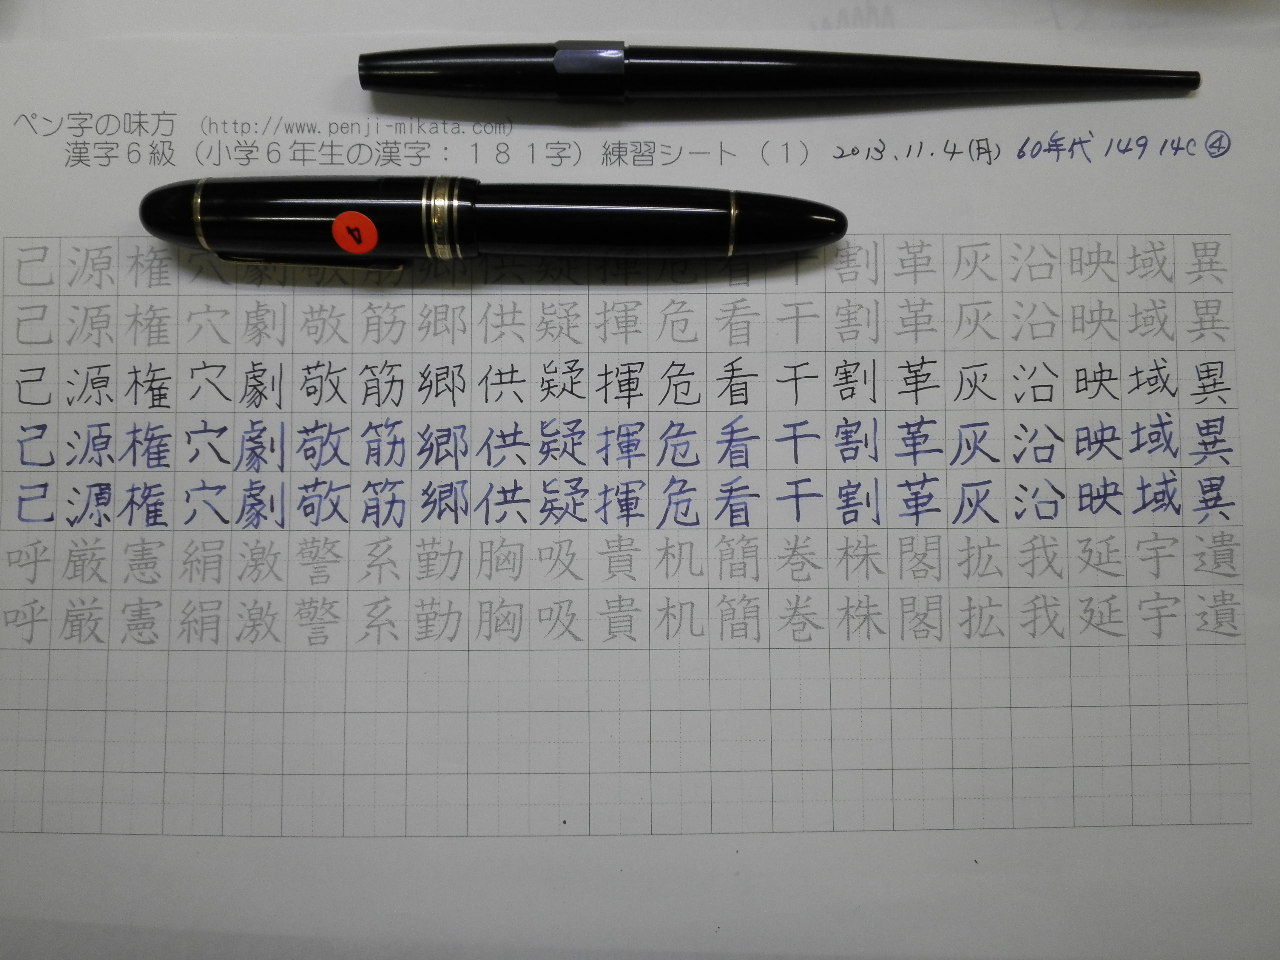 ペン字の味方 (http://www.penji-mikata.com)
漢字6級（小学6年生の漢字：181字）練習シート（1） 2013.11.4(月) 60年代 149 14C ④
4
己源権穴劇敬筋郷供疑揮危看干割革灰沿映域異
己源権穴劇敬筋郷供疑揮危看干割革灰沿映域異
己源権穴劇敬筋郷供疑揮危看干割革灰沿映域異
己源権穴劇敬筋郷供疑揮危看干割革灰沿映域異
己源権穴劇敬筋郷供疑揮危看干割革灰沿映域異
呼厳憲絹激警系勤胸吸貴机簡巻株閣拡我延宇遺
呼厳憲絹激警系勤胸吸貴机簡巻株閣拡我延宇遺